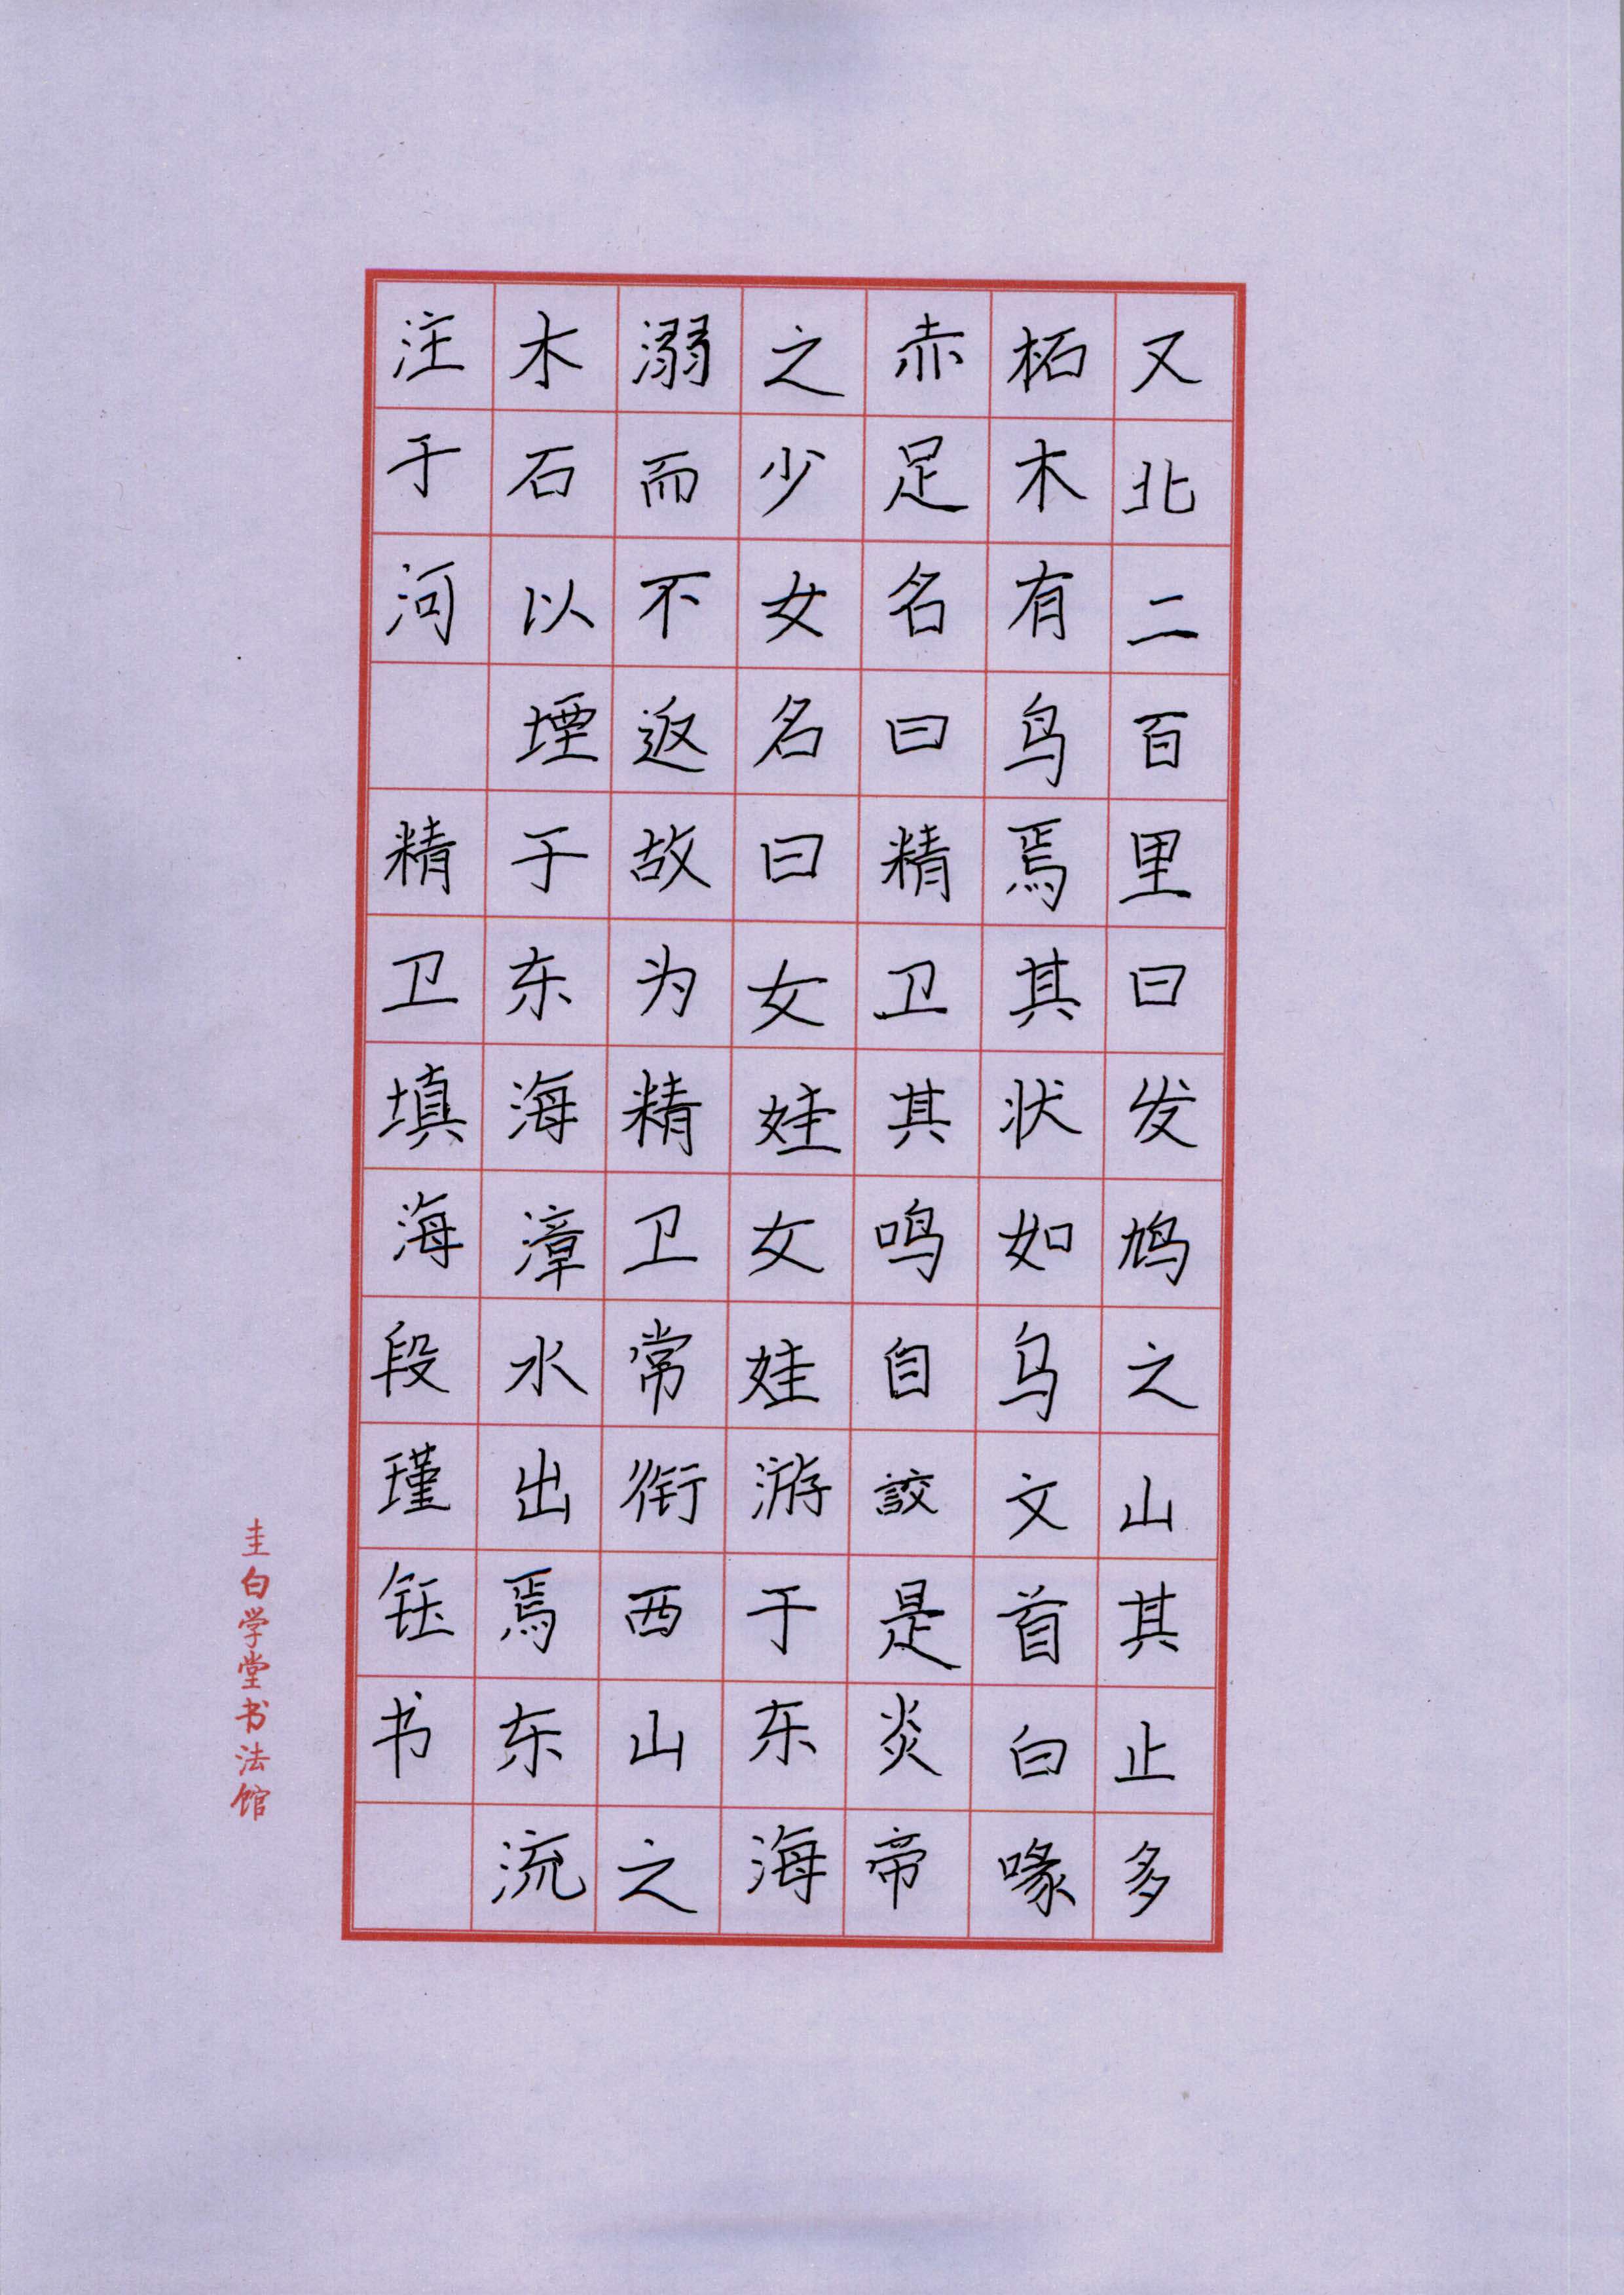 又北二百里曰发鸠之山其止多
柘木有鸟焉其状如乌文首白喙
赤足名曰精卫其鸣自詨是炎帝
之少女名曰女娃女娃游于东海
溺而不返故为精卫常衔西山之
木石以堙于东海漳水出焉东流
注于河 精卫填海段瑾钰书
圭白学堂书法馆